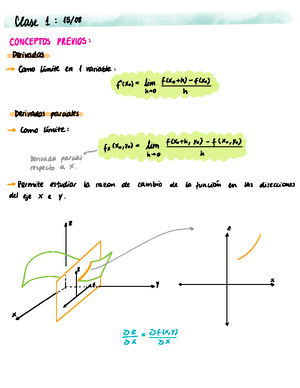 Clase 1 : 15/08
CONCEPTOS PREVIOS:
Derivadas
→ Como límite en 1 variable:
f'(x₀) = lim h→0 f(x₀+h) - f(x₀) / h
Derivadas parciales
→ Como límite:
fₓ(x₀,y₀) = lim h→0 f(x₀+h, y₀) - f(x₀,y₀) / h
Derivada parcial
respecto a X.
→ Permite estudiar la razón de cambio de la función en las direcciones
del eje X e Y.
z
z
x
y
x
∂z/∂x = ∂f(x,y)/∂x